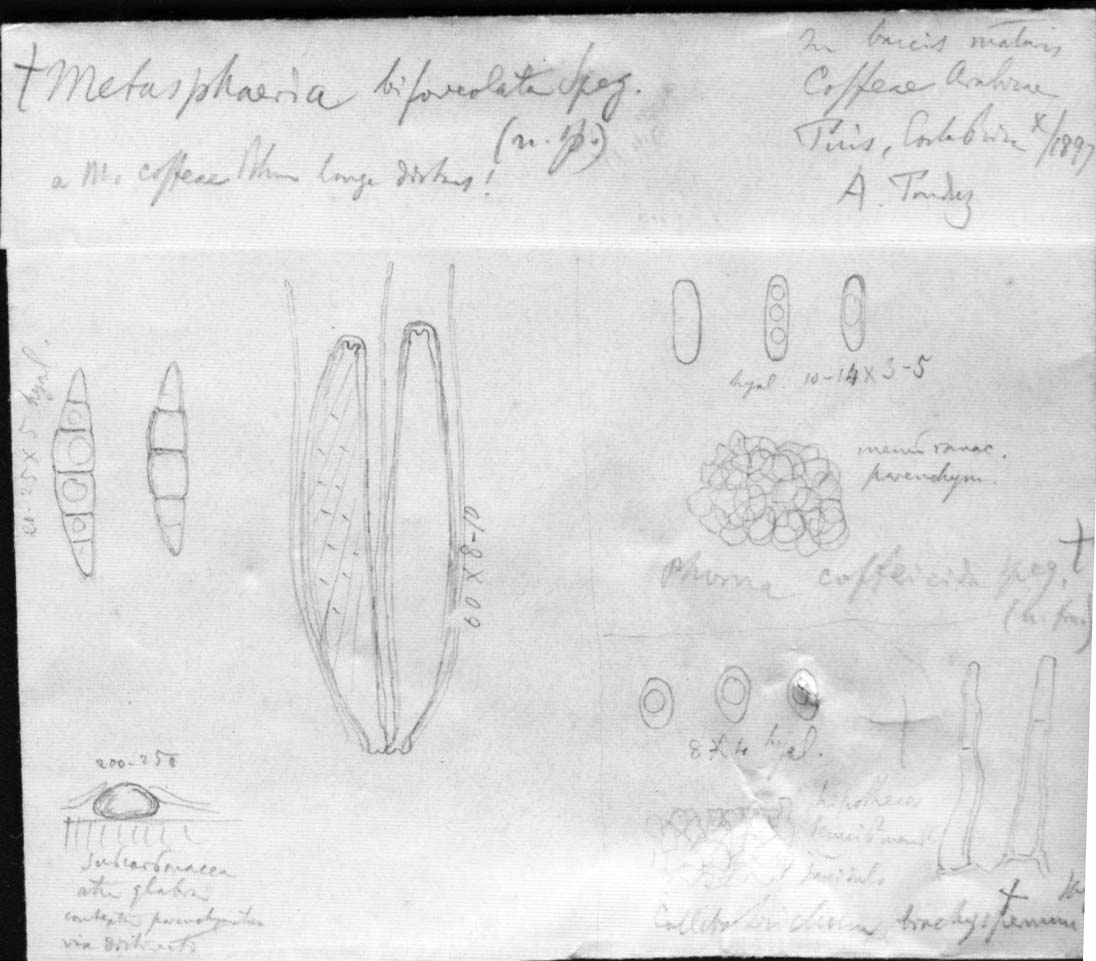 † Metasphaeria bifoveolata Speg.
(n. sp.)
a M. coffeae longe distans!
In baccis maturis
Coffeae Arabicae
X/1897
A. Tonduz
20-25 X 5 hyal.
60 X 8-10
hyal. 10-14 X 3-5
membranac.
parenchym.
Phoma coffeicida Speg. †
8 X 4 hyal.
200-250
Subcarbonacea
atra glabra
contextu parenchymatico
vix distincto
hypothecio
†
Colletotrichum brachyspermum